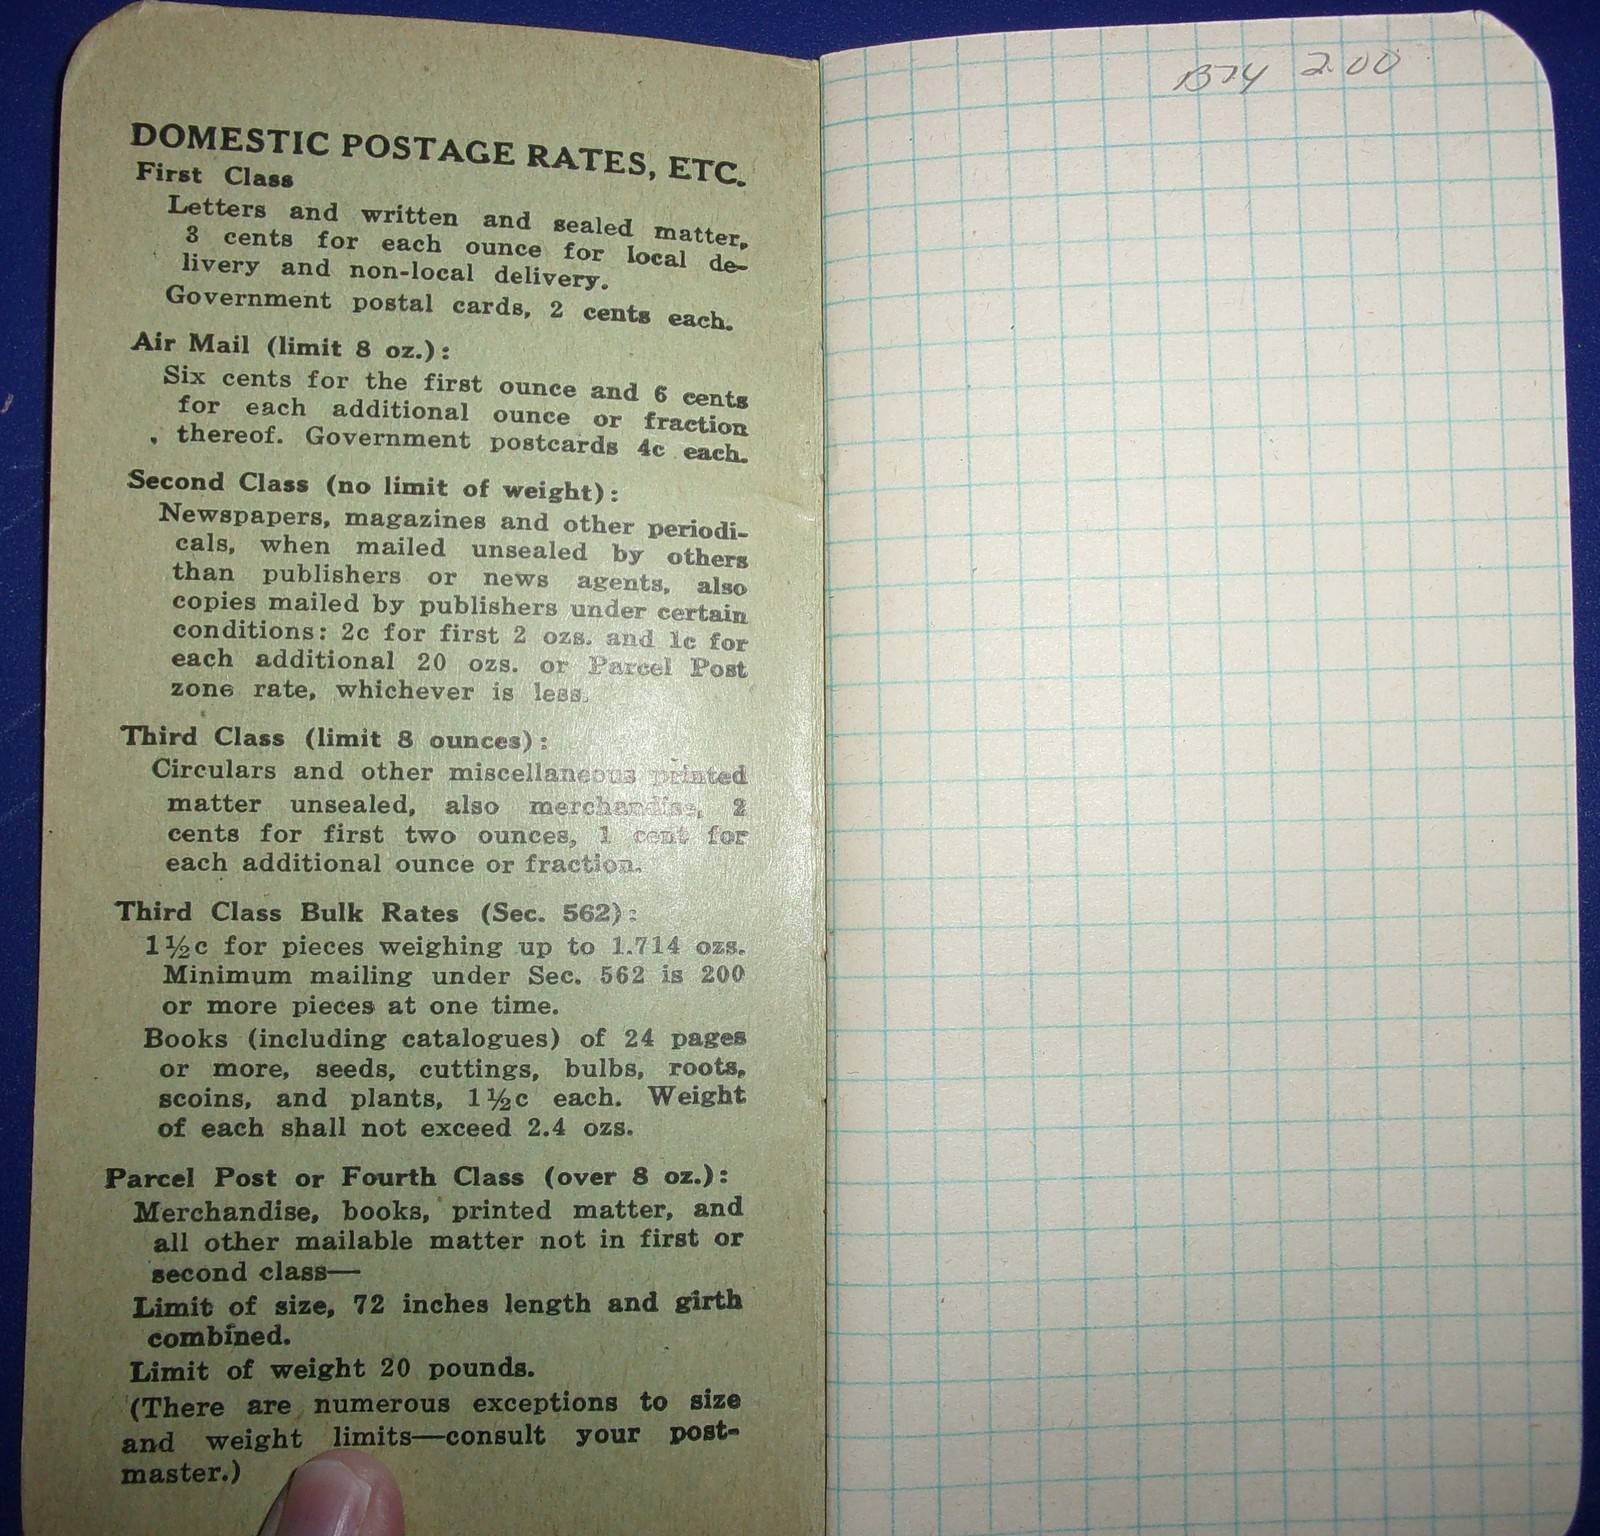 DOMESTIC POSTAGE RATES, ETC.
First Class
Letters and written and sealed matter,
3 cents for each ounce for local de-
livery and non-local delivery.
Government postal cards, 2 cents each.
Air Mail (limit 8 oz.):
Six cents for the first ounce and 6 cents
for each additional ounce or fraction
thereof. Government postcards 4c each.
Second Class (no limit of weight):
Newspapers, magazines and other periodi-
cals, when mailed unsealed by others
than publishers or news agents, also
copies mailed by publishers under certain
conditions: 2c for first 2 ozs. and 1c for
each additional 20 ozs. or Parcel Post
zone rate, whichever is less.
Third Class (limit 8 ounces):
Circulars and other miscellaneous printed
matter unsealed, also merchandise, 2
cents for first two ounces, 1 cent for
each additional ounce or fraction.
Third Class Bulk Rates (Sec. 562):
1½c for pieces weighing up to 1.714 ozs.
Minimum mailing under Sec. 562 is 200
or more pieces at one time.
Books (including catalogues) of 24 pages
or more, seeds, cuttings, bulbs, roots,
scoins, and plants, 1½c each. Weight
of each shall not exceed 2.4 ozs.
Parcel Post or Fourth Class (over 8 oz.):
Merchandise, books, printed matter, and
all other mailable matter not in first or
second class—
Limit of size, 72 inches length and girth
combined.
Limit of weight 20 pounds.
(There are numerous exceptions to size
and weight limits—consult your post-
master.)
2.00